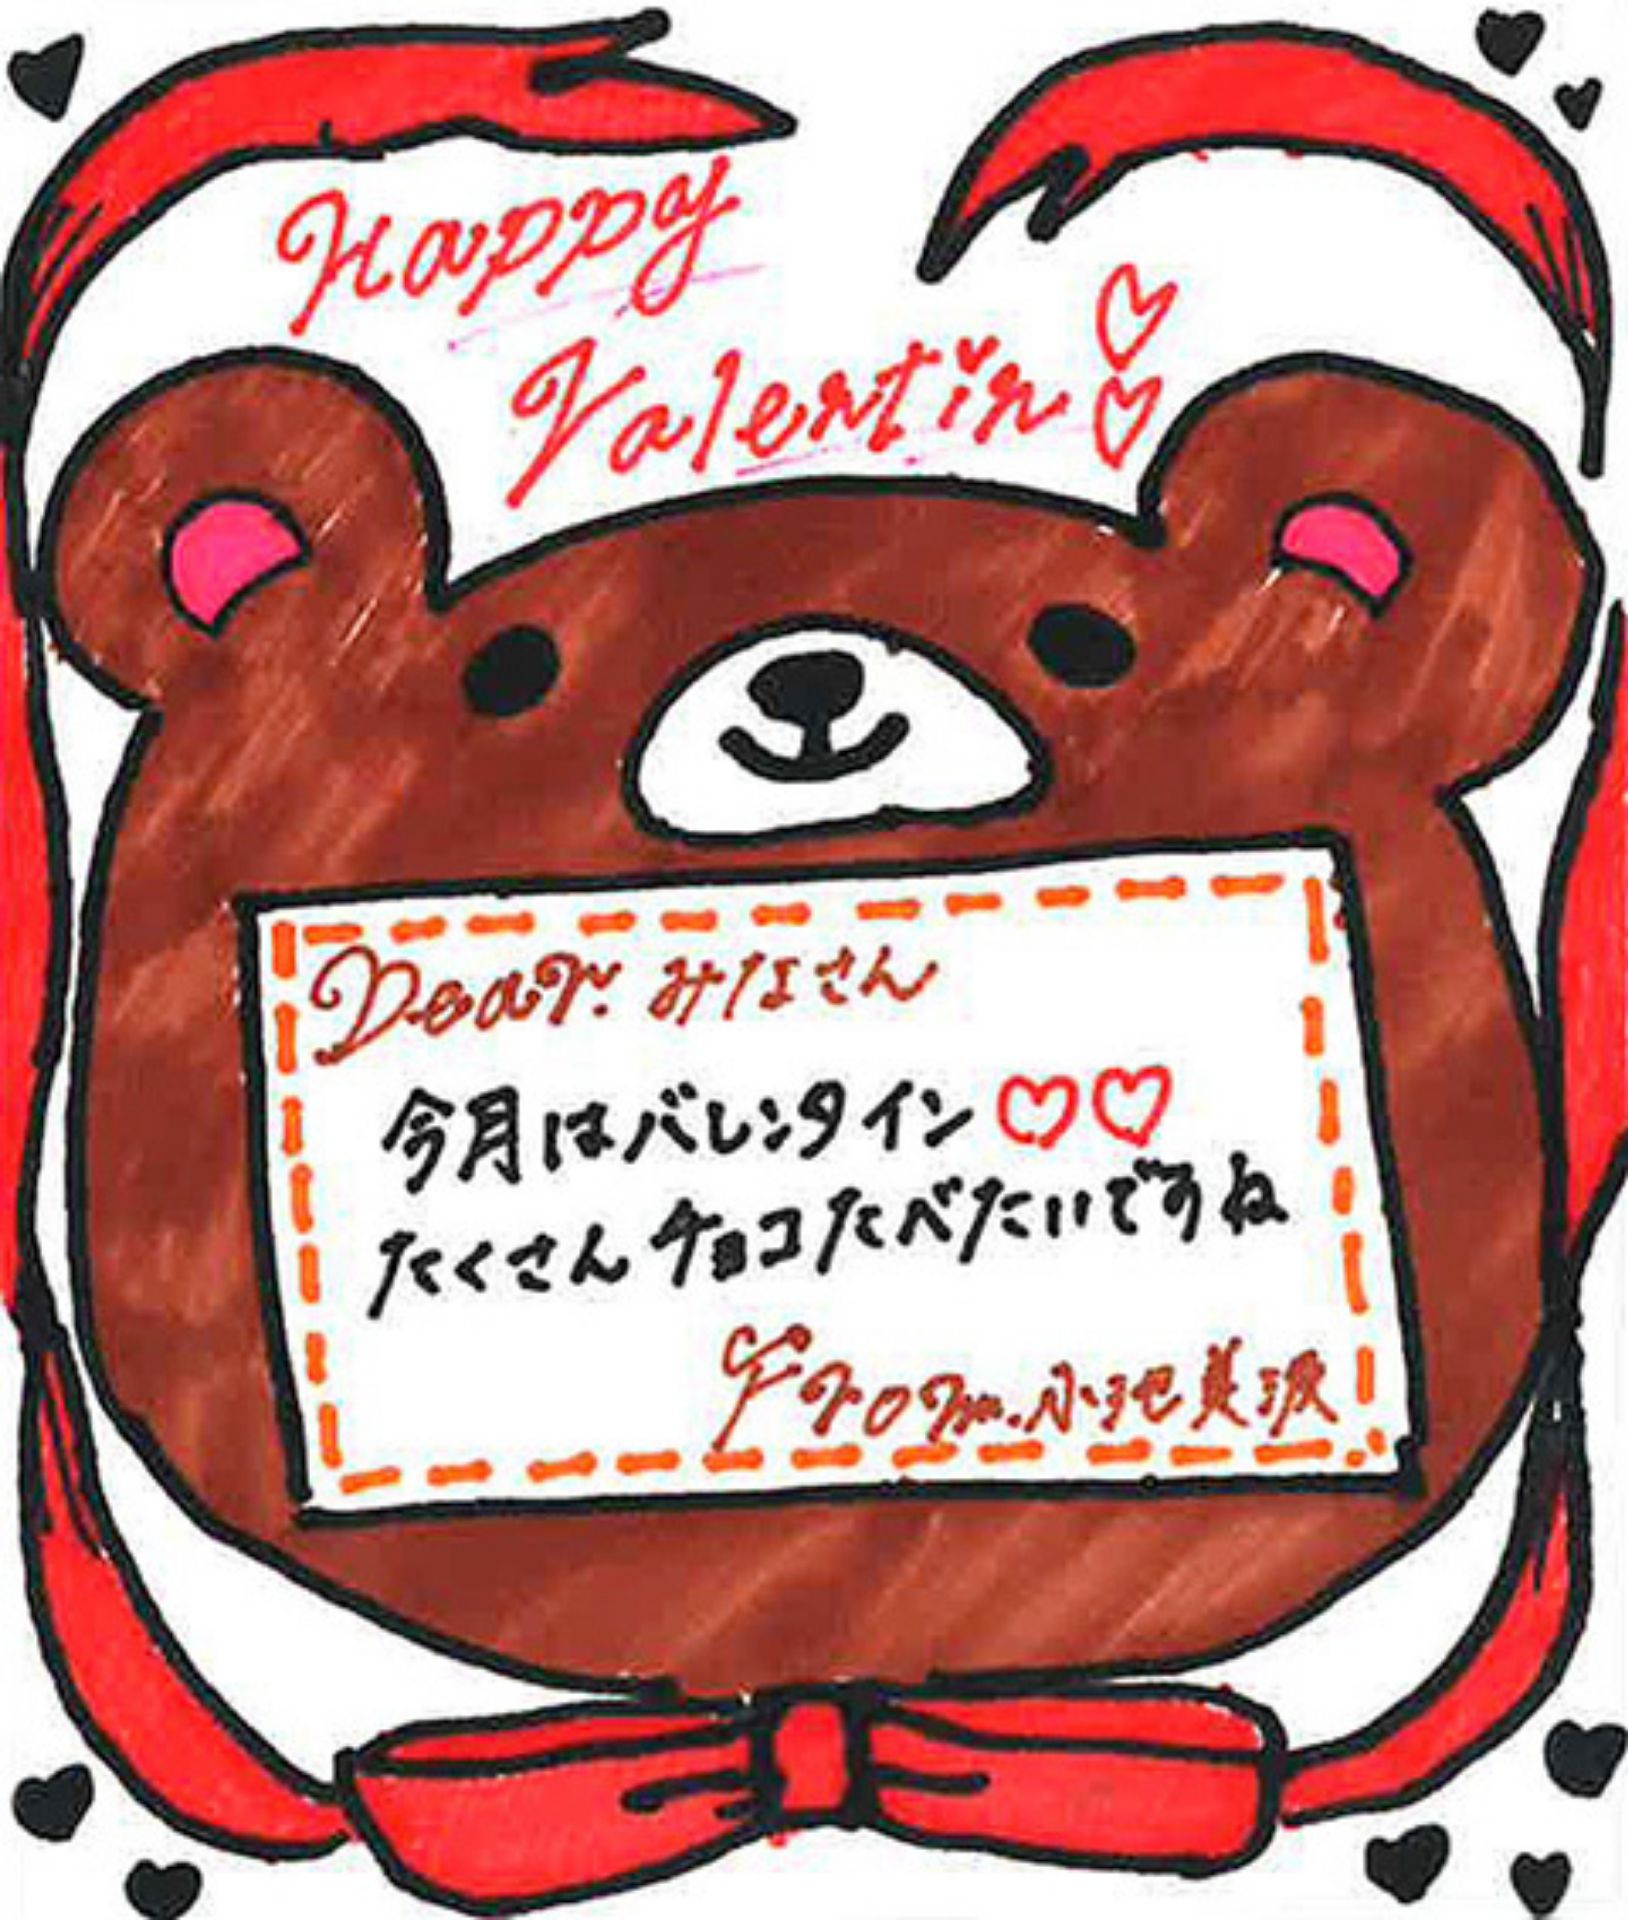 Happy
Valentin♡♡
Dear. みなさん
今月はバレンタイン♡♡
たくさんチョコたべたいですね
From. 小池美波